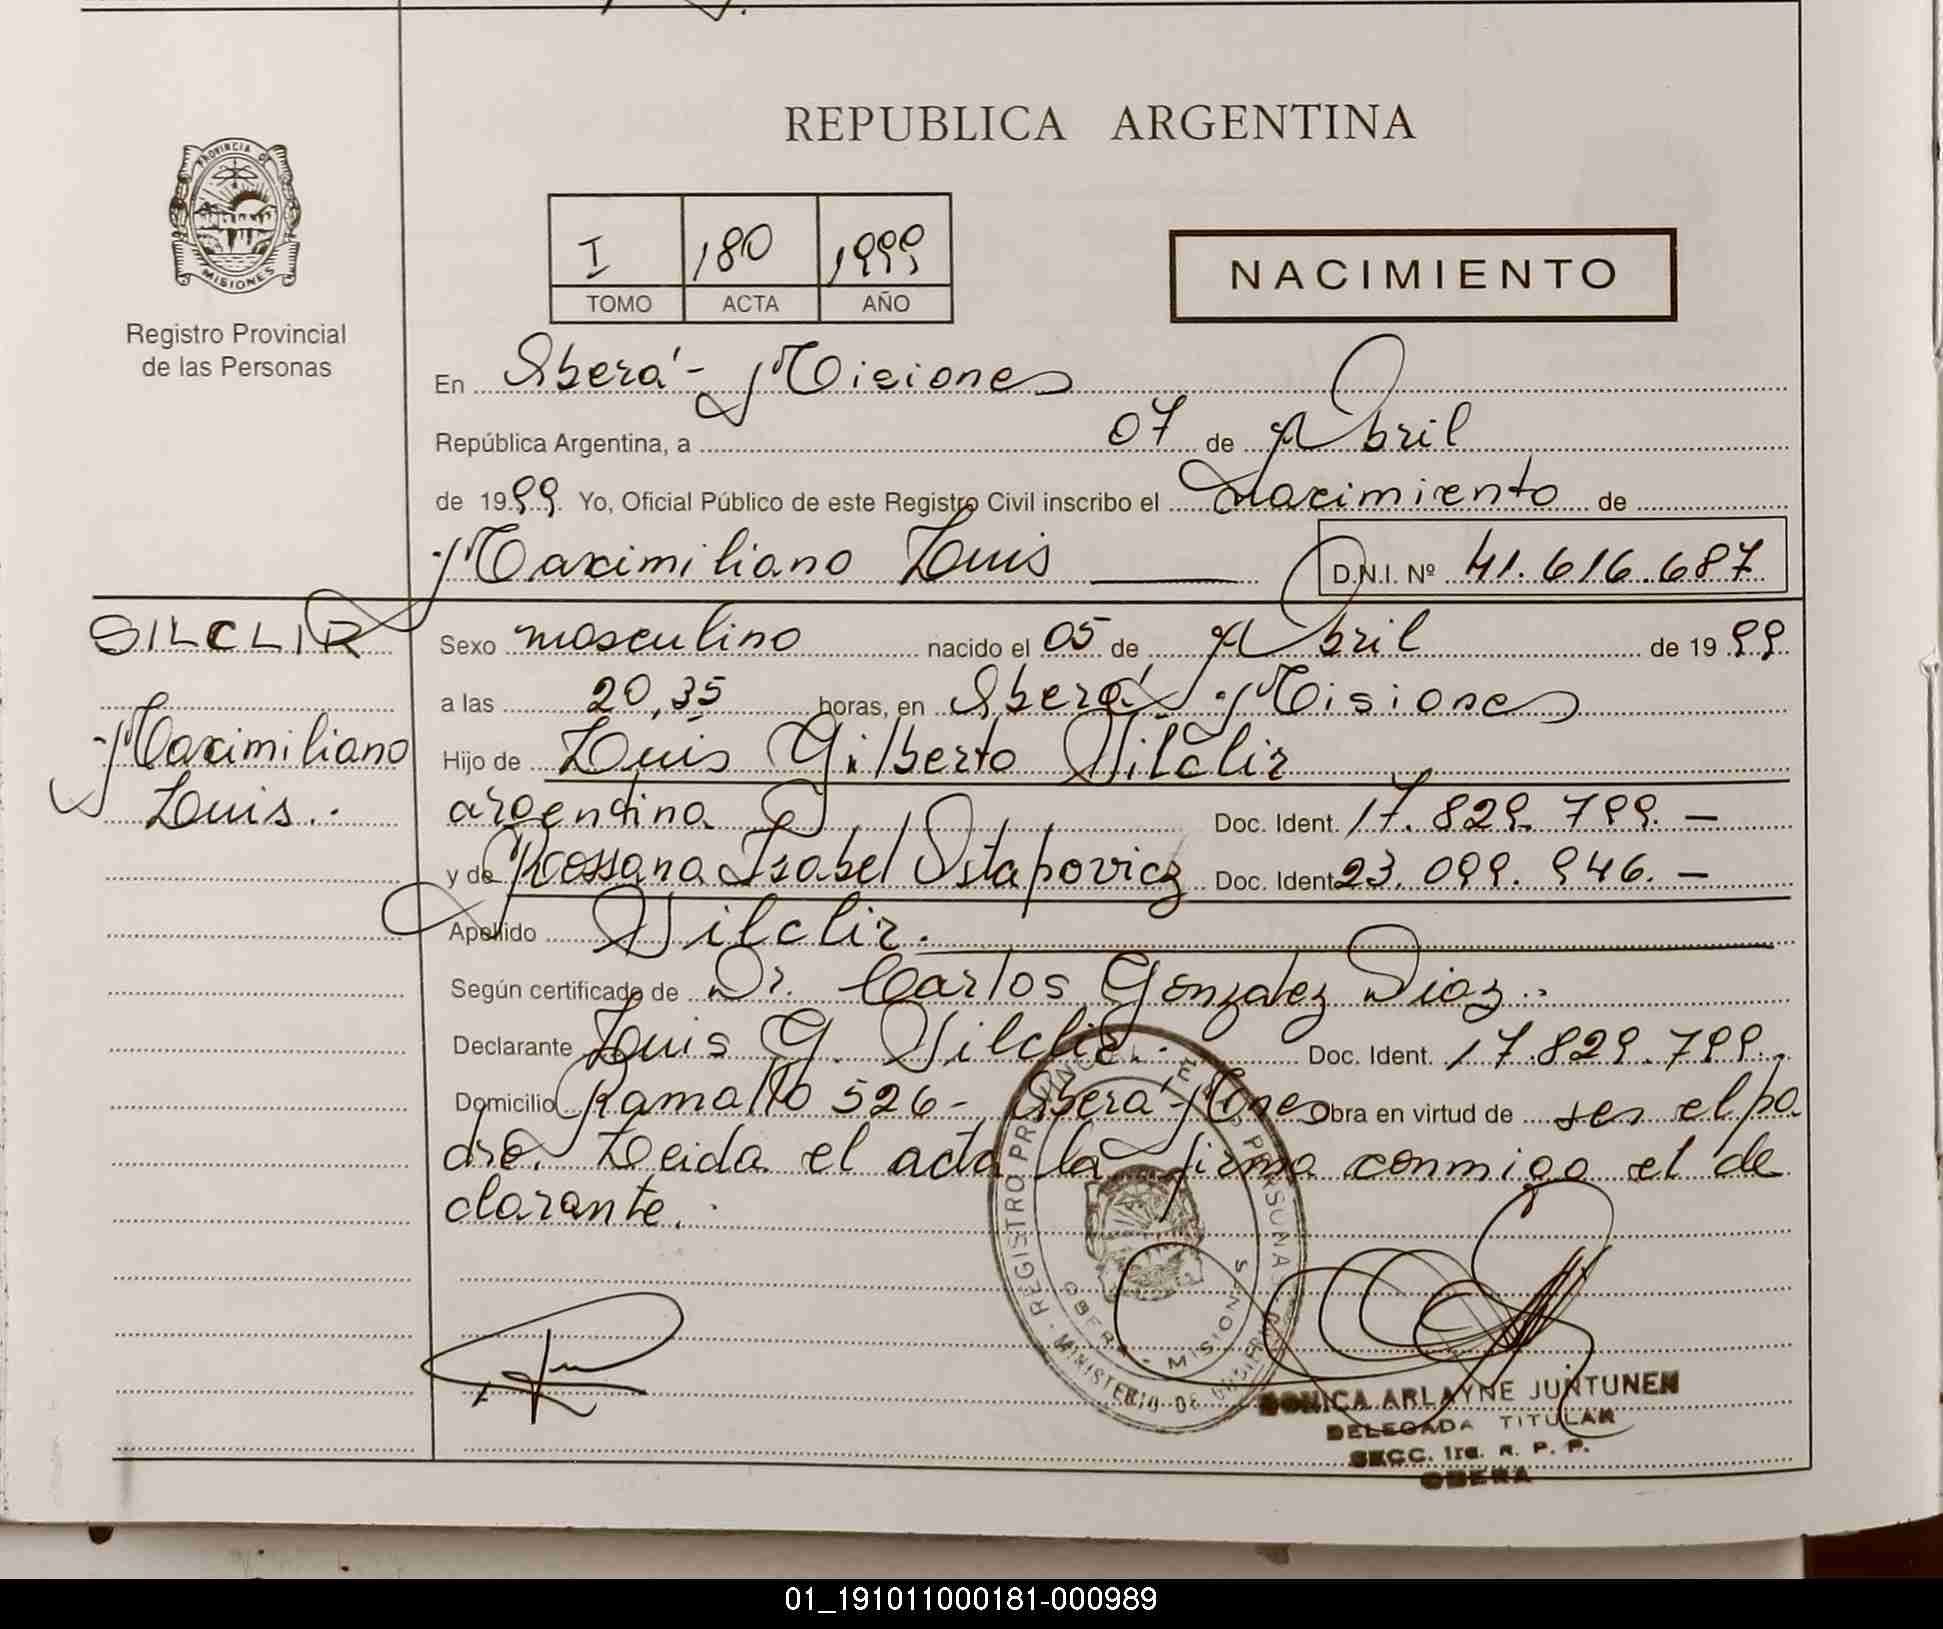 PROVINCIA DE
MISIONES
Registro Provincial
de las Personas
REPUBLICA ARGENTINA
I 180 1999
TOMO ACTA AÑO
NACIMIENTO
En Oberá - Misiones
República Argentina, a 07 de Abril
de 1999. Yo, Oficial Público de este Registro Civil inscribo el Nacimiento de
Maximiliano Luis D.N.I. Nº 41.616.687
SILCLIR
Maximiliano
Luis.-
Sexo masculino nacido el 05 de Abril de 1999
a las 20,35 horas, en Oberá Misiones
Hijo de Luis Gilberto Silclir
argentino Doc. Ident. 17.829.799.-
y de Rossana Isabel Ostapovicz Doc. Ident. 23.099.946.-
Apellido Silclir.
Según certificado de Dr. Carlos Gonzalez Diaz.-
Declarante Luis G. Silclir.- Doc. Ident. 17.829.799.-
Domicilio Ramallo 526- Oberá-Mnes Obra en virtud de ser el pa
dre. Leida el acta la firma conmigo el de
clarante.-
REGISTRO PROVINCIAL DE LAS PERSONAS
OBERA - MISIONES
MINISTERIO DE GOBIERNO
MONICA ARLAYNE JUNTUNEN
DELEGADA TITULAR
SECC. 1ra. R. P. P.
OBERA
01_191011000181-000989